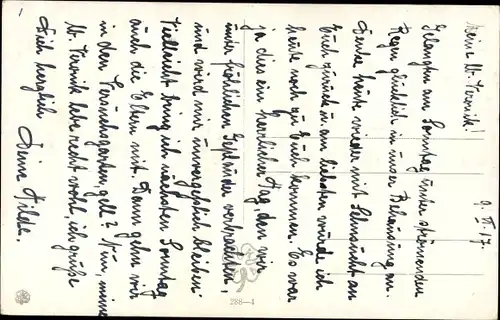 9. VI. 17.
Meine lb. Veronik!
Gelangten am Sonntag unter strömenden
Regen glücklich in unser Behausung an.
Denke heute wieder mit Sehnsucht an
Euch zurück u. am liebsten würde ich
heute noch zu Euch kommen. Es war
ja dies ein herrlicher Tag, den wir
unter fröhlichen Geplauder verbrachten,
und wird mir unvergeßlich bleiben.
Vielleicht bring ich nächsten Sonntag
auch die Eltern mit. Dann gehn wir
in den Versuchsgarten, gell? Nun, meine
lb. Veronik lebe recht wohl, ich grüße
Dich herzlich Deine Hilde.
288-4